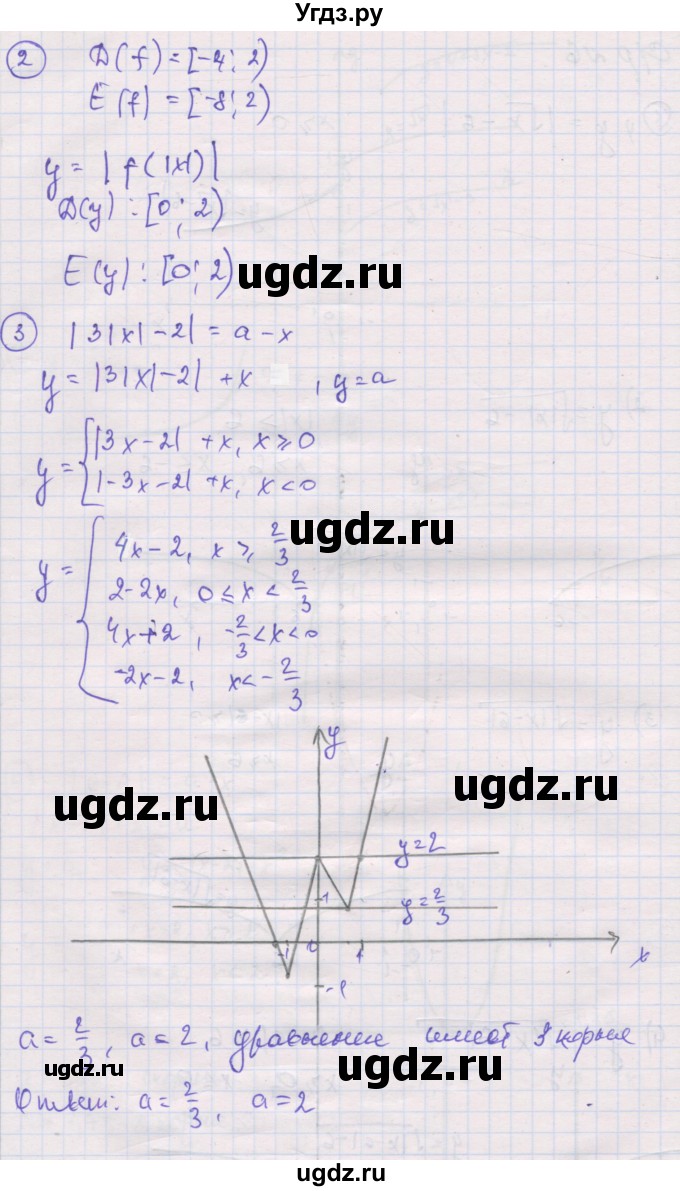 Угдз.ру
2 D(f) = [-4; 2)
E(f) = [-8; 2)
y = |f(|x|)|
D(y): [0; 2)
E(y): [0; 2)
ugdz.ru
3 |3|x|-2| = a-x
y = |3|x|-2| + x , y=a
y = { |3x-2| + x, x ≥ 0
|-3x-2| + x, x < 0
ugdz.ru
y = { 4x-2, x ≥ 2/3
2-2x, 0 ≤ x < 2/3
4x+2, -2/3 < x < 0
-2x-2, x < -2/3
y
ugdz.ru
ugdz.ru
y=2
1
y=2/3
-1 0 1 x
-1
a = 2/3, a = 2, уравнение имеет 3 корня
ugdz.ru
ugdz.ru
Ответ: a = 2/3, a = 2
ugdz.ru